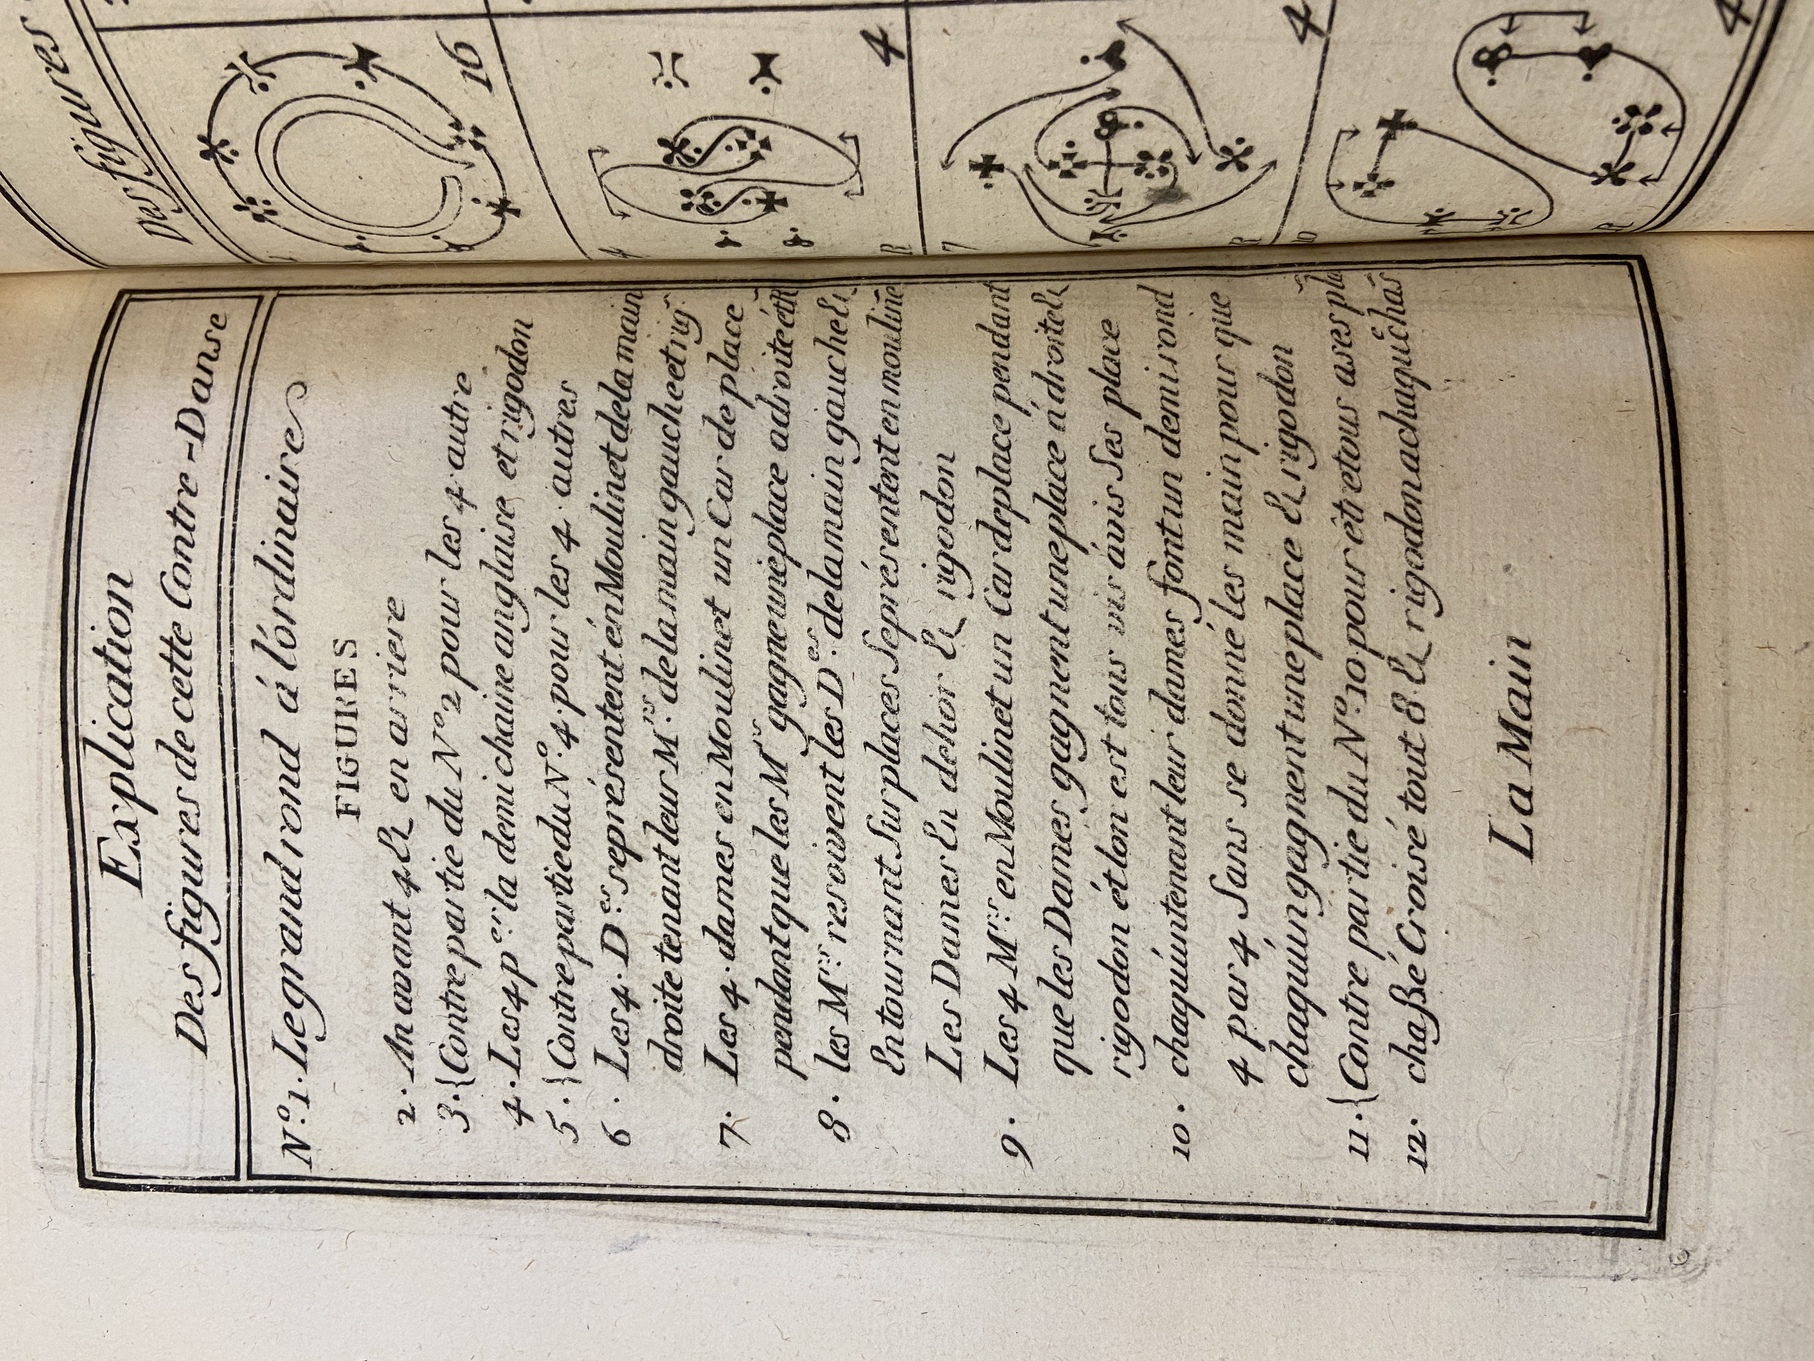 Explication
Des figures de cette Contre-Danse
N.º 1. Le grand rond á l'ordinaire
FIGURES
2. An avant 4 & en arriere
3. {Contre partie du N.º 2 pour les 4 autre
4. Les 4 p.ers la demi chaine anglaise et rigodon
5. {Contre partie du N.º 4 pour les 4 autres
6. Les 4. D.es se présentent én Moulinet de la main
droite tenant leur M.rs de la main gauche et rig
7. Les 4. dames en Moulinet un Car de place
pendant que les M.rs gagne une place a droite
8. les M.rs resoivent les D.es de la main gauche &
En tournant Sur places Se présentent en mouline
Les Dames En dehor & rigodon
9. Les 4 M.rs en Moulinet un Car de place pendant
que les Dames gagnent une place á droite &
rigodon ét lon est tous vis ávis Ses place
10. chaquún tenant leur dames font un demi rond
4 par 4 Sans se donné les main pour que
chaquun gagnent une place & rigodon
11. {Contre partie du N.º 10 pour étre tous a ses pla
12. chassé Croisé tout 8 & rigodon a chaque chas
La Main
Des figures
16
4
R
7
4
R
4
R